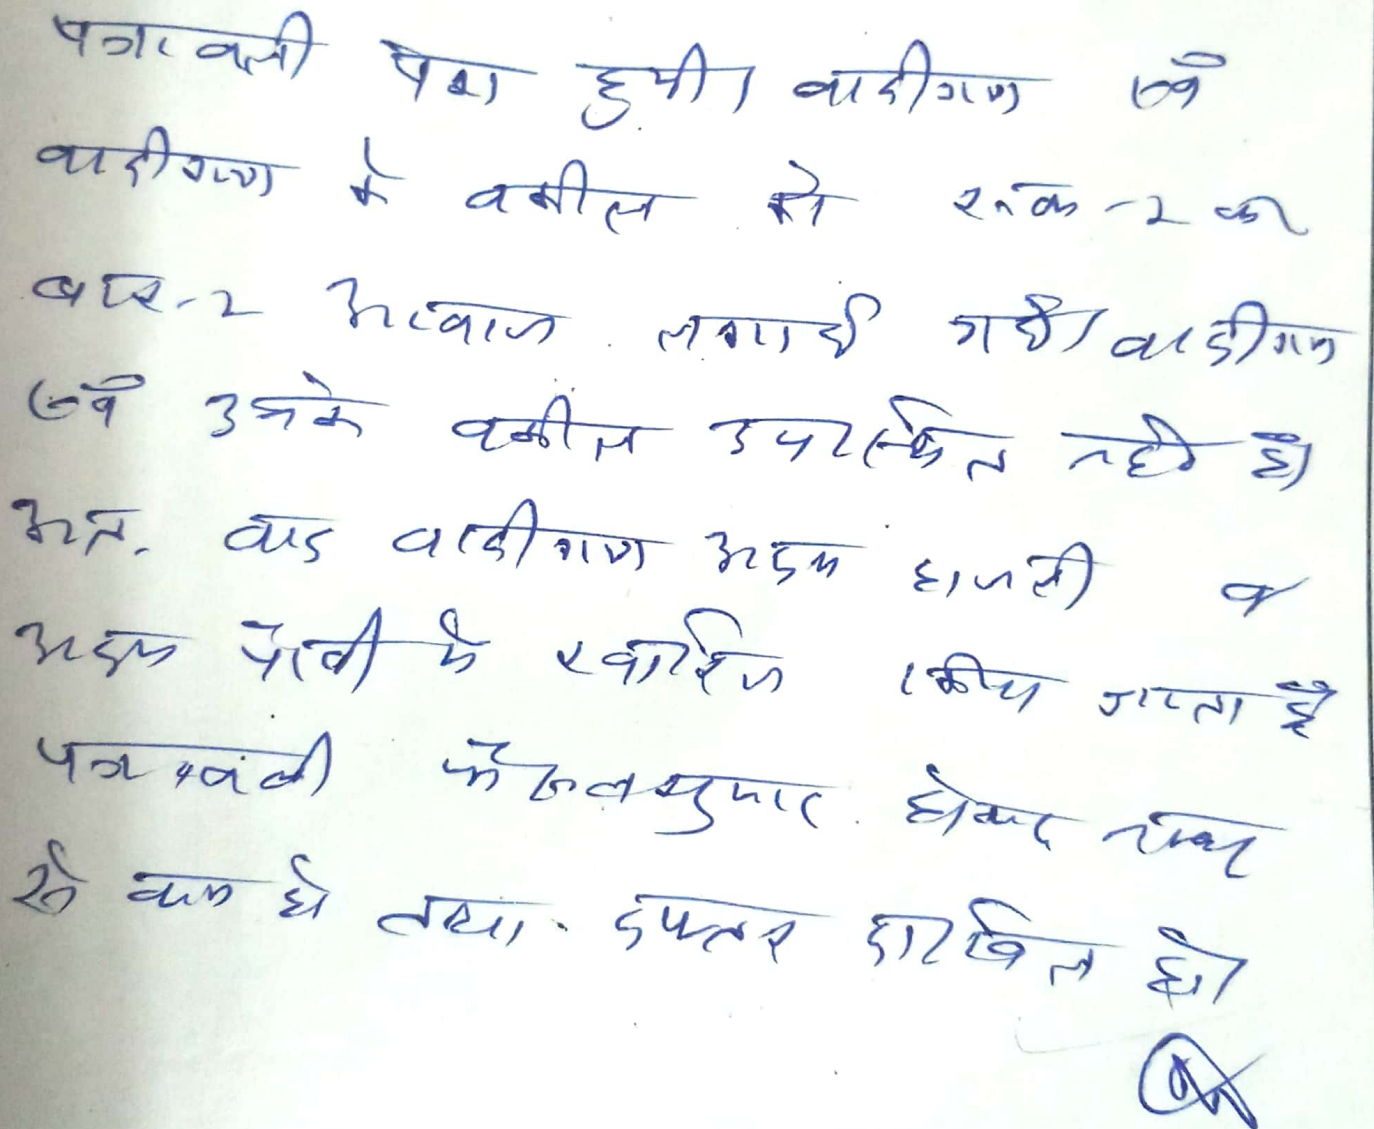 पत्रावली पेश हुयी। वादीगण एवं
वादीगण के वकील को रूक-२ कर
बार-२ आवाज लगाई गई। वादीगण
एवं उनके वकील उपस्थित नहीं है।
अत. वाद वादीगण अदम हाजरी व
अदम पैरवी मे खारिज किया जाता है
पत्रावली फैसलशुमार होकर नम्बर
से कम हो तथा दफ्तर दाखिल हो।